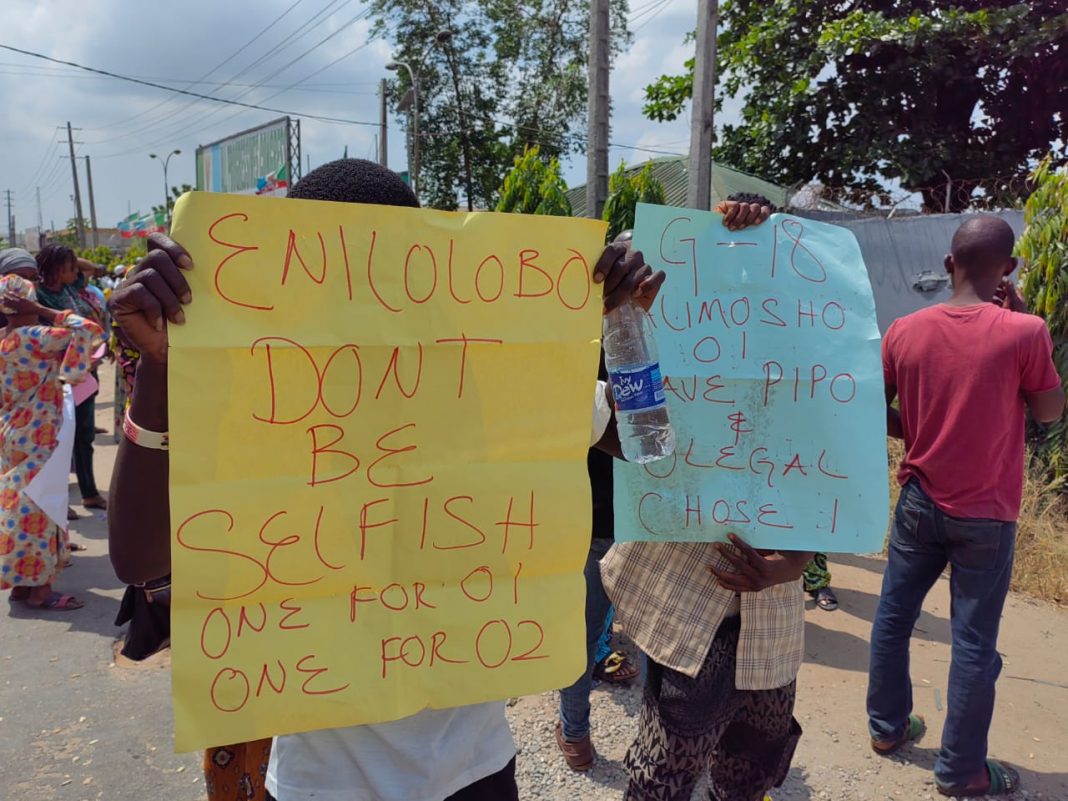 ENILOLOBO
DONT
BE
SELFISH
ONE FOR 01
ONE FOR 02
G-18
LIMOSHO
01
AVE PIPO
&
OLEGAL
CHOSE 1
Dew